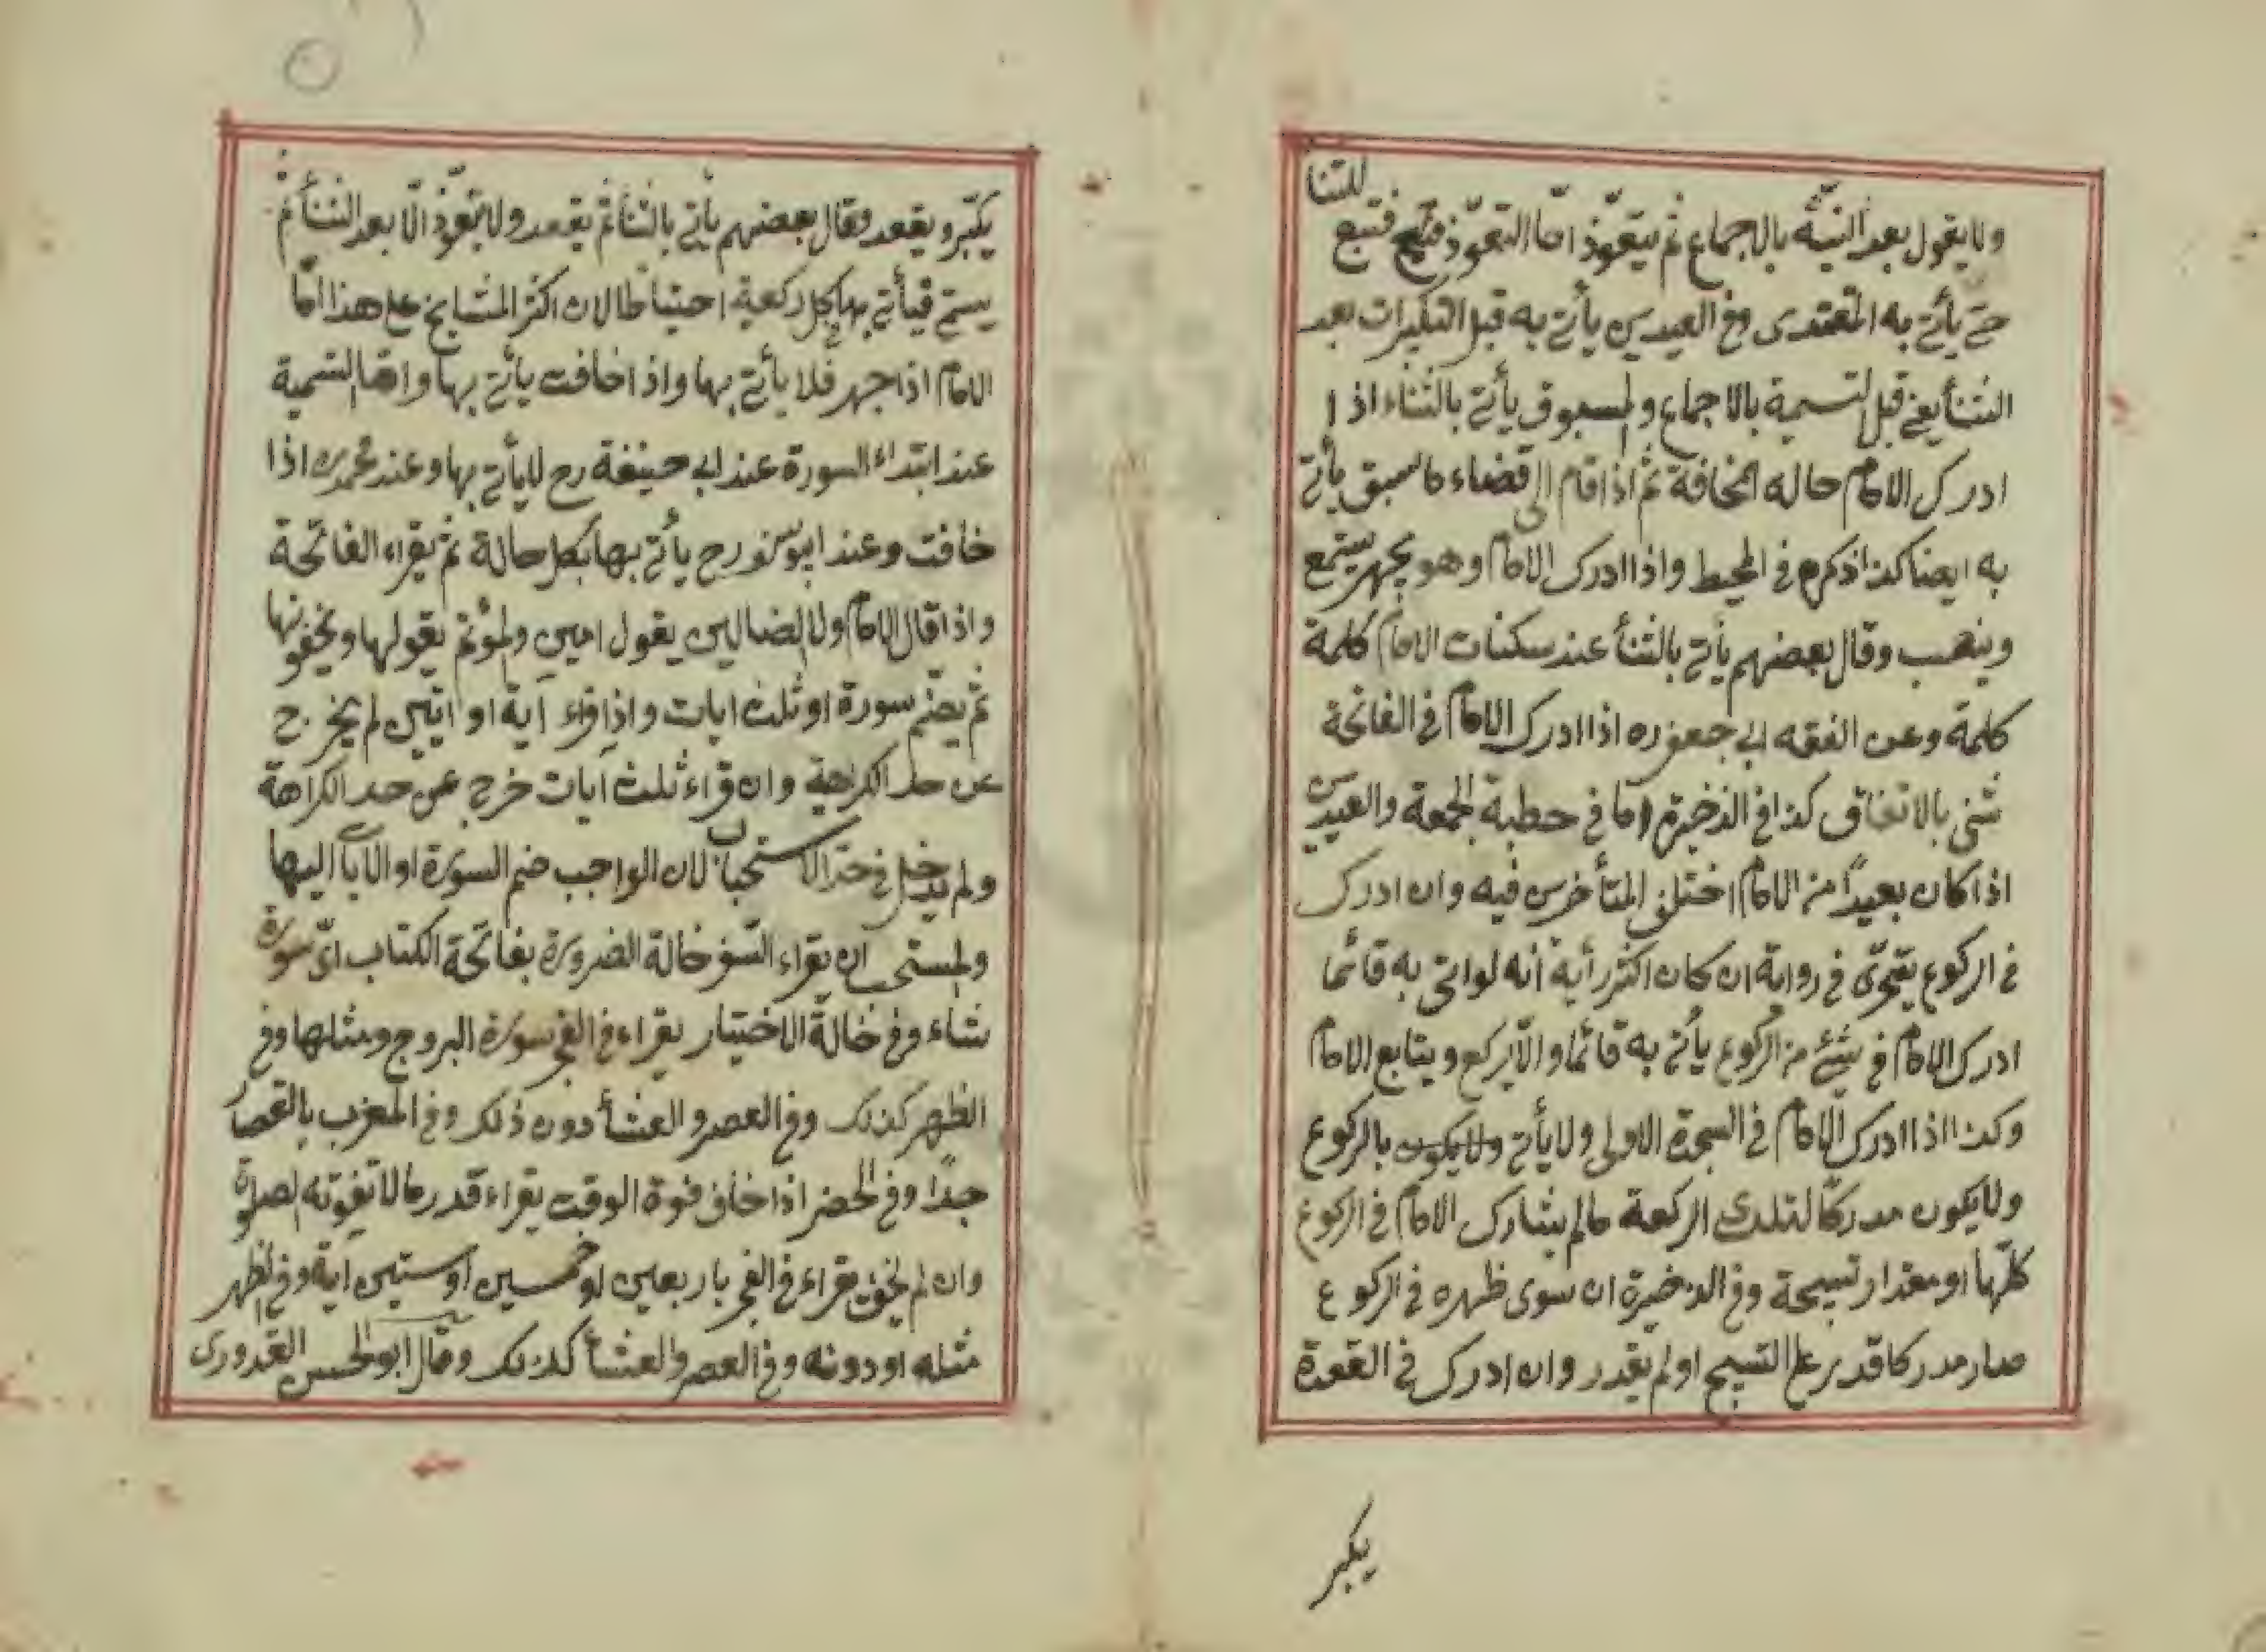 ولا يقول بعد النيّة بالاجماع ثم يتعوّذ امّا التعوّذ فتبع للثنا
حتى يأتى به المقتدى وفى العيدين يأتى به قبل التكبيرات بعد
الثنأ يعنى قبل التسمية بالاجماع والمسبوق يأتى بالثناء اذا
ادرك الامام حاله المخافة ثم اذا قام الى قضاء ما سبق يأتى
به ايضا كذا ذكره فى المحيط واذا ادرك الامام وهو يجهر يستمع
وينصب وقال بعضهم يأتى بالثنأ عند سكنات الامام كلمة
كلمة وعن الفقه ابى جعفر ره اذا ادرك الامام فى الفاتحة
ثنى بالاتفاق كذا فى الذخيرة اما فى خطبة الجمعة والعيدين
اذا كان بعيدًا من الامام اختلف المتأخرين فيه وان ادرك
فى الركوع يتحرّى فى رواية ان كان اكثر رأيه أنه لو اتى به قائما
ادرك الامام فى شئ من الركوع يأتى به قائما والّا يركع ويتابع الامام
وكذا اذا ادرك الامام فى السجدة الاولى ولا يأتى ولا يكون بالركوع
ولا يكون مدركًا لتلك الركعة ما لم يشارك الامام فى الركوع
كلّها او مقدار تسبيحة وفى الذخيرة ان سوى ظهره فى الركوع
صار مدركا قدر على التسبيح او لم يقدر وان ادرك فى القعدة
يكبر
يكبّر ويقعد وقال بعضهم يأتى بالثنأ ثم يقعد ولا يتعوّذ الّا بعد الثنأ ثم
يسمى فيأتى بها فى كل ركعة احتياطا لان اكثر المشايخ على هذا امّا
الامام اذا جهر فلا يأتى بها واذا خافت يأتى بها وامّا التسمية
عند ابتداء السورة عند ابى حنيفة رح لا يأتى بها وعند محمد ره اذا
خافت وعند ابو يوسف رح يأتى بها بكل حالة ثم يقراء الفاتحة
واذا قال الامام ولا الضالين يقول امين والمؤتم يقولها ويخفونها
ثم يضم سورة او ثلث ايات واذا قراء آية او آيتين لم يخرج
عن حد الكراهية وان قراء ثلث آيات خرج عن حد الكراهة
ولم يدخل فى حدّ الاستحباب لان الواجب ضم السورة او الآيات اليها
والمستحب ان يقراء السفر خالة الضرورة بفاتحة الكتاب اىّ سورة
شاء وفى خالة الاختيار يقراء فى الفجر سورة البروج ومثلها وفى
الظهر كذلك وفى العصر والعشأ دون ذلك وفى المغرب بالقصار
جدًا وفى الحضر اذا خاف فوة الوقت يقراء قدر ما لا تفوته الصلوة
وان لم يخف يقراء فى الفجر باربعين او خمسين او ستين اية وفى الظهر
مثله او دونه وفى العصر والعشأ كذلك وقال ابو الحسن القدورى